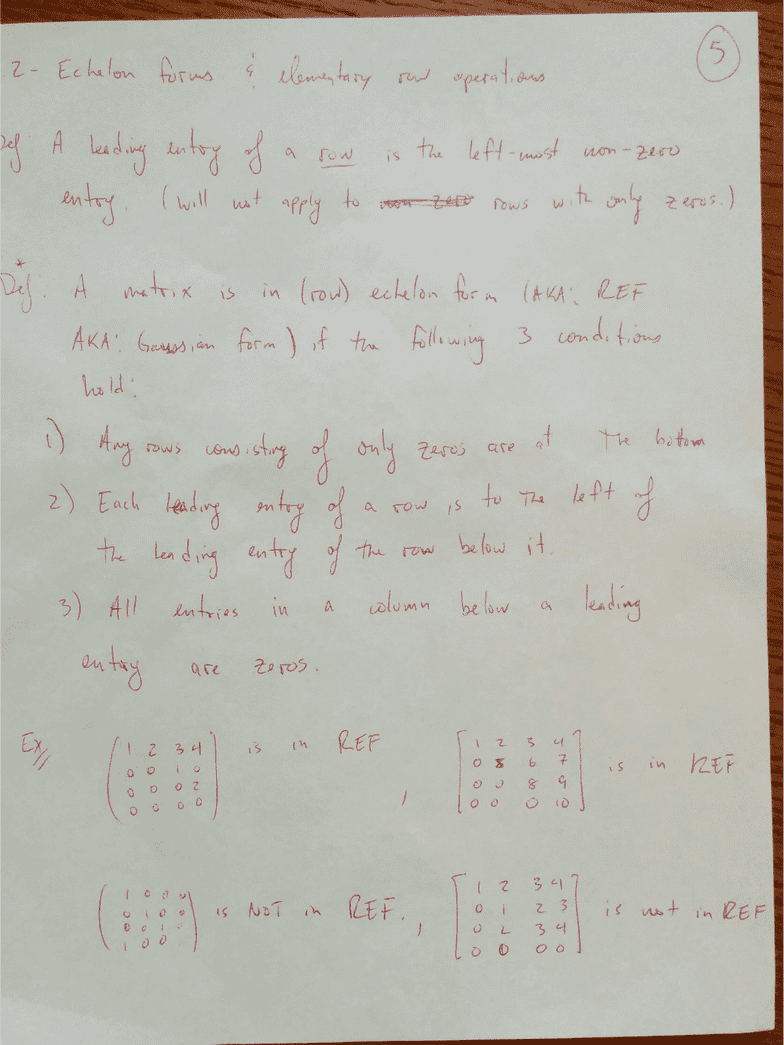 5
2- Echelon forms & elementary row operations
Def: A leading entry of a row is the left-most non-zero
entry. (will not apply to non zero rows with only zeros.)
*
Def: A matrix is in (row) echelon form (AKA: REF
AKA: Gaussian form) if the following 3 conditions
hold:
1) Any rows consisting of only zeros are at the bottom
2) Each leading entry of a row is to the left of
the leading entry of the row below it.
3) All entries in a column below a leading
entry are zeros.
Ex// is in REF , is in REF
1 2 3 4
0 0 1 0
0 0 0 2
0 0 0 0
1 2 3 4
0 5 6 7
0 0 8 9
0 0 0 10
is NOT in REF. , is not in REF
1 0 0 0
0 1 0 0
0 0 1 0
1 0 0
1 2 3 4
0 1 2 3
0 2 3 4
0 0 0 0